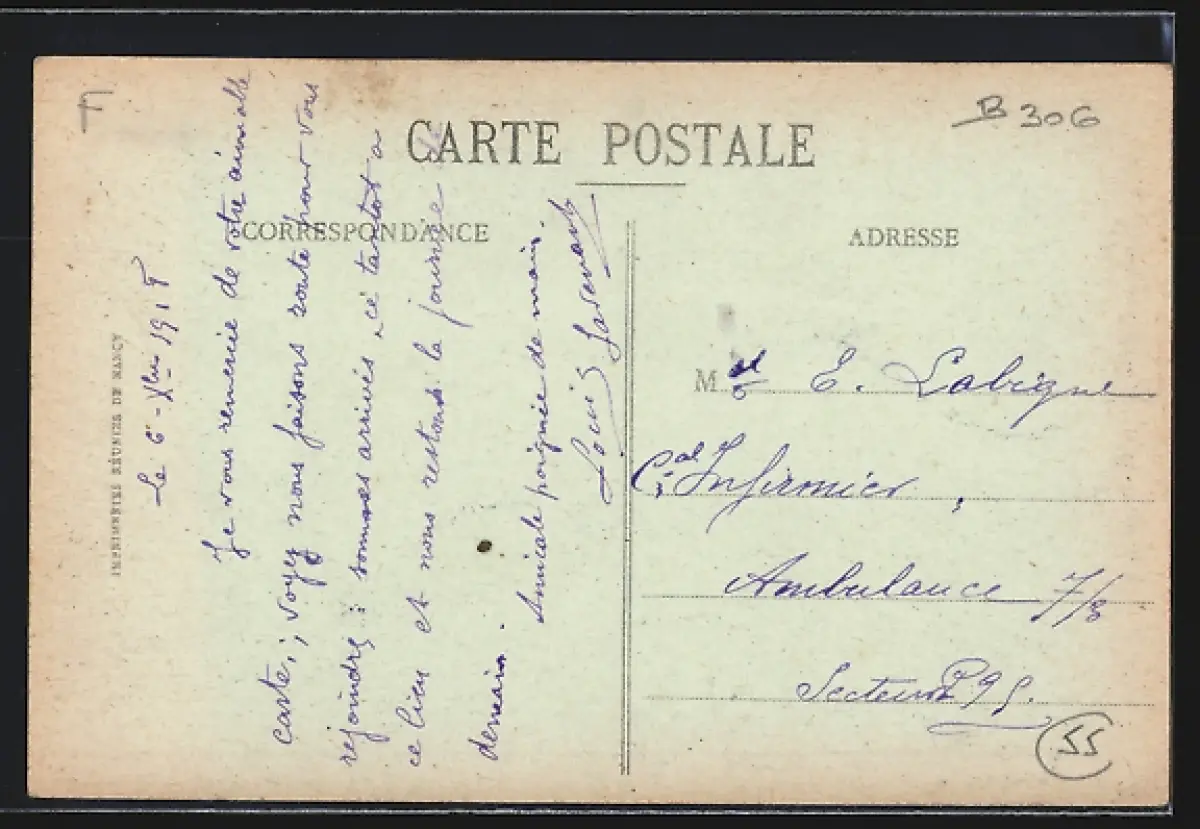 CARTE POSTALE
CORRESPONDANCE
ADRESSE
B 306
Le 6 - Xbre 1918
Je vous remercie de votre aimable
carte, ; voyez nous faisons route pour vous
rejoindre ; sommes arrivés ce tantôt a
ce lieu et nous restons la journée de
demain.
Amicale poignée de main.
Louis
M E. Labigne
Cal Infirmier,
Ambulance 7/8
Secteur P 95.
55
IMPRIMERIES RÉUNIES DE NANCY